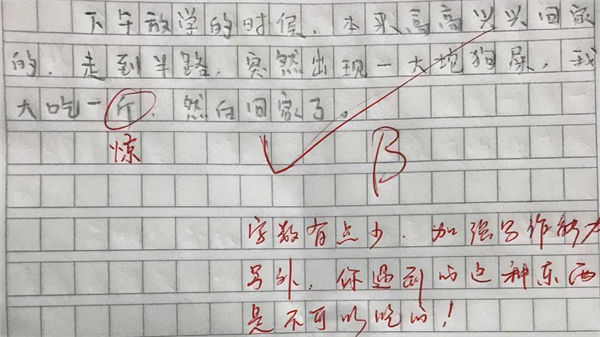 下午放学的时候，本来高高兴兴回家
的，走到半路，突然出现一大坨狗屎，我
大吃一斤，然后回家了。
惊
B
字数有点少，加强写作能力
另外，你遇到的这种东西
是不可以吃的！